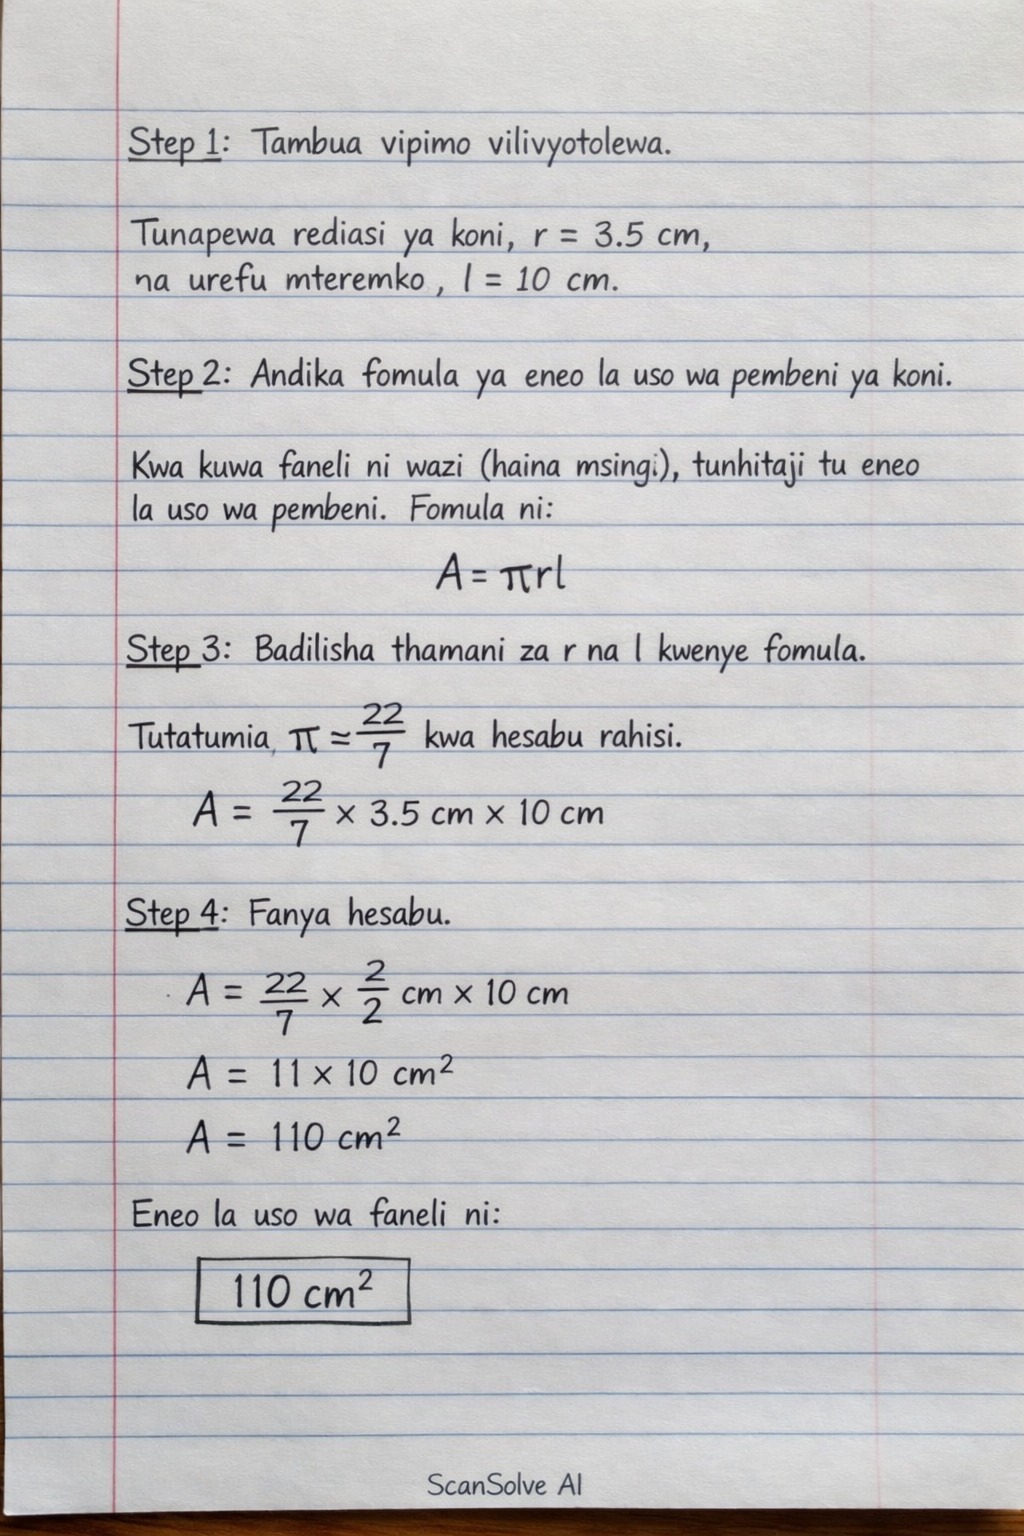 Step 1: Tambua vipimo vilivyotolewa.
Tunapewa rediasi ya koni, r = 3.5 cm,
na urefu mteremko, l = 10 cm.
Step 2: Andika fomula ya eneo la uso wa pembeni ya koni.
Kwa kuwa faneli ni wazi (haina msingi), tunhitaji tu eneo
la uso wa pembeni. Fomula ni:
A = πrl
Step 3: Badilisha thamani za r na l kwenye fomula.
Tutatumia, π ≈ 22/7 kwa hesabu rahisi.
A = 22/7 × 3.5 cm × 10 cm
Step 4: Fanya hesabu.
A = 22/7 × 2/2 cm × 10 cm
A = 11 × 10 cm²
A = 110 cm²
Eneo la uso wa faneli ni:
110 cm²
ScanSolve AI